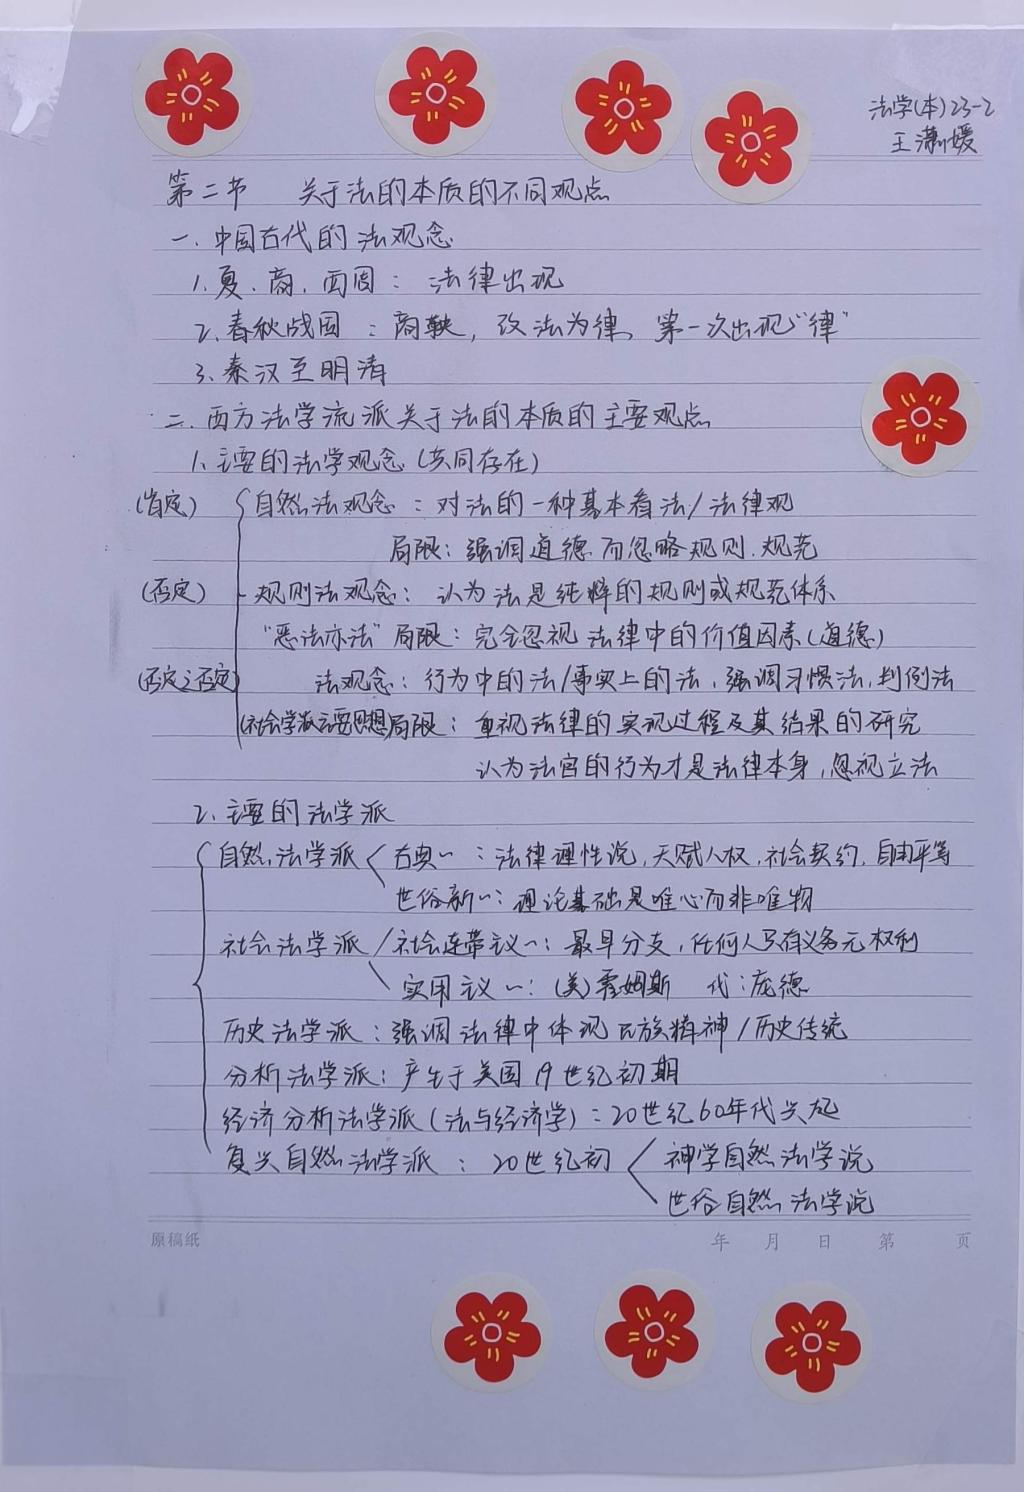 法学(本)23-2
王潇媛
第二节 关于法的本质的不同观点
一.中国古代的法观念
1.夏.商.西周: 法律出现
2.春秋战国:商鞅,改法为律,第一次出现"律"
3.秦汉至明清
二.西方法学流派关于法的本质的主要观点
1.主要的法学观念(共同存在)
(肯定) 自然法观念:对法的一种基本看法/法律观
局限:强调道德而忽略规则.规范
(否定) 规则法观念:认为法是纯粹的规则或规范体系
"恶法亦法"局限:完全忽视法律中的价值因素(道德)
(否定之否定) 法观念:行为中的法/事实上的法,强调习惯法,判例法
(社会学派主要思想)局限:重视法律的实现过程及其结果的研究
认为法官的行为才是法律本身,忽视立法
2.主要的法学派
自然法学派<古典~:法律理性说,天赋人权,社会契约,自由平等
世俗新~:理论基础是唯心而非唯物
社会法学派 社会连带主义~:最早分支,任何人只有义务无权利
实用主义~:(美)詹姆斯 代:庞德
历史法学派:强调法律中体现民族精神/历史传统
分析法学派:产生于英国19世纪初期
经济分析法学派(法与经济学):20世纪60年代兴起
复兴自然法学派:20世纪初<神学自然法学说
世俗自然法学说
原稿纸 年 月 日 第 页